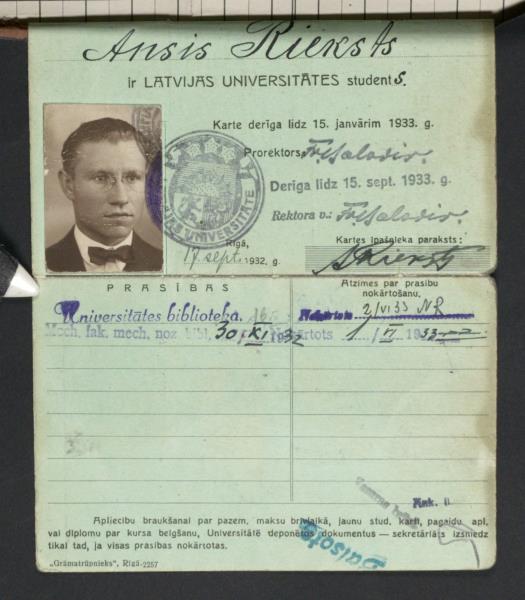 Ansis Rieksts
ir LATVIJAS UNIVERSITĀTES students.
Karte derīga līdz 15. janvārim 1933. g.
Prorektors:
Derīga līdz 15. sept. 1933. g.
Rektora v.:
Rīgā,
17. sept. 1932. g.
Kartes īpašnieka paraksts:
ARieksts
UNIVERSITĀTE
PRASĪBAS
Atzīmes par prasību
nokārtošanu.
Universitātes biblioteka. Nokārtots 2/VI 33 NR
Mech. fak. mech. noz. bibl. 30/XI 1932 Nokārtots 1/VI 1933
Apliecību braukšanai par pazem. maksu brīvlaikā, jaunu stud. karti, pagaidu apl.
vai diplomu par kursa beigšanu, Universitātē deponētos dokumentus — sekretāriāts izsniedz
tikai tad, ja visas prasības nokārtotas.
„Grāmatrūpnieks“, Rīgā-2257